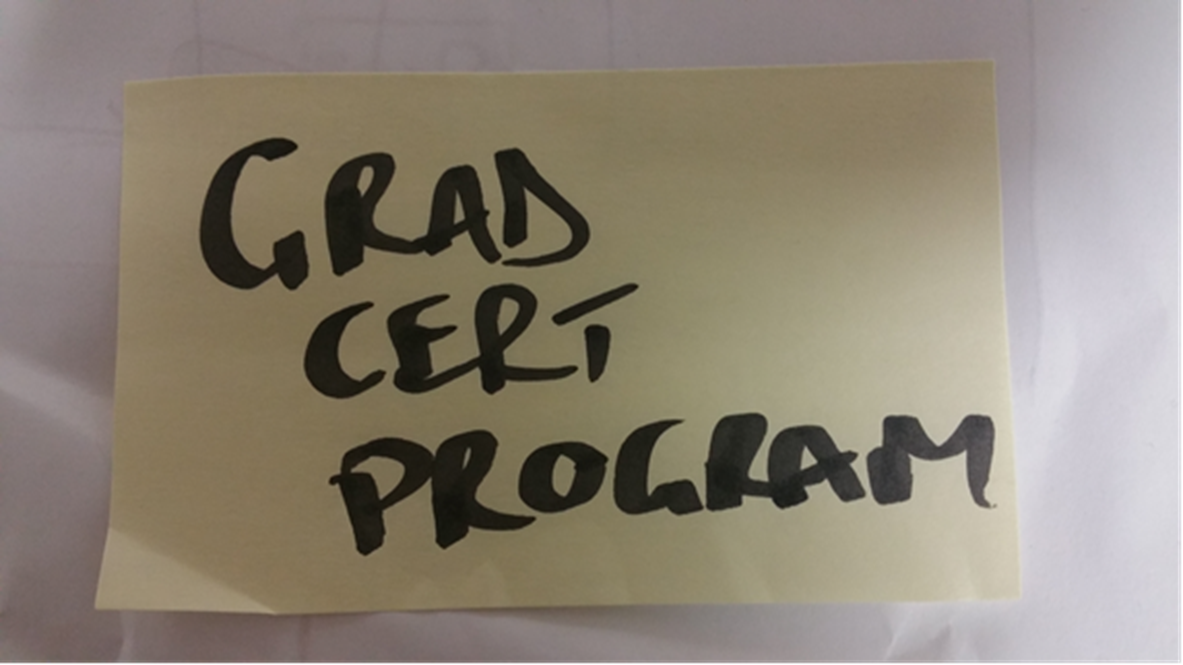 GRAD
CERT
PROGRAM